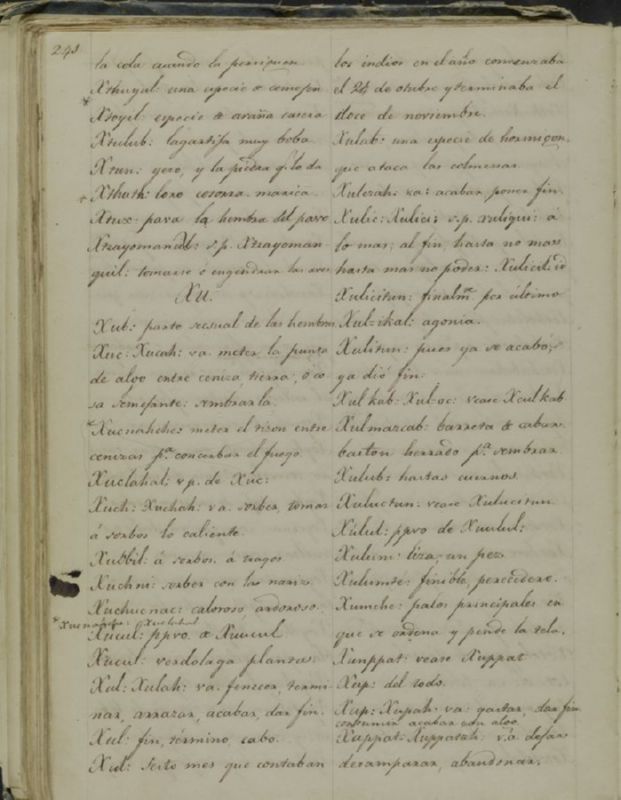 291
la cola cuando la persiguen
Xthuyul: una especie de
Xtoyil: especie de araña casera
Xtulub: lagartija muy boba
Xtun: yeso, y la piedra q.e lo da
Xthuth: loro cotorra marica
Xtux: pava la hembra del pavo
Xtzayomanil: s.p. Xtzayoman-
quil: tomarse ó engendrar las aves
XU.
Xub: parte secsual de las hembras
Xuc: Xucah: va. meter la punta
de algo entre ceniza, tierra, ó co
sa semejante: sembrarla.
Xucnahche: meter el tison entre
cenizas p.a conservar el fuego
Xuclahal: v.p. de Xuc:
Xuch: Xuchah: v.a. sorber, tomar
á sorbos lo caliente.
Xubbil: á sorbos. á tragos
Xuchni: sorber con las narices
Xuchucnac: caloroso, ardoroso.
Xucul: ppvo. de Xuucul
Xucul: verdolaga planta.
Xul: Xulah: va. fenecer, termi
nar, arrazar, acabar, dar fin.
Xul: fin, término, cabo.
Xul: Sexto mes que contaban
los indios en el año comenzaba
el 24 de otubre y terminaba el
doce de noviembre.
Xulab: una especie de hormigon
que ataca las colmenas
Xulezah: va: acabar, poner fin
Xulic: Xulici: s.p. xuliqui: á
lo mas; al fin, hasta no mas
hasta mas no poder: Xulicil: id
Xulicitun: finalm.te por último
Xul-ikal: agonia.
Xulitun: pues ya se acabó;
ya dió fin.
Xul kab: Xul-oc: vease Xculkab
Xulmazcab: barreta de cabar
baston herrado p.a sembrar
Xulub: hastas cuernos
Xuluctun: vease Xulucitun
Xulul: ppvo de Xuulul:
Xulum: liza; un pez.
Xulumte: finible, perecedero.
Xumche: palos principales en
que se ordena y pende la tela.
Xunppat: vease Xuppat
Xup: del todo
Xup: Xupah: va: gastar, dar fin
consumir acabar con algo.
Xuppat: Xuppatah: v.a. dejar
desamparar, abandonar.